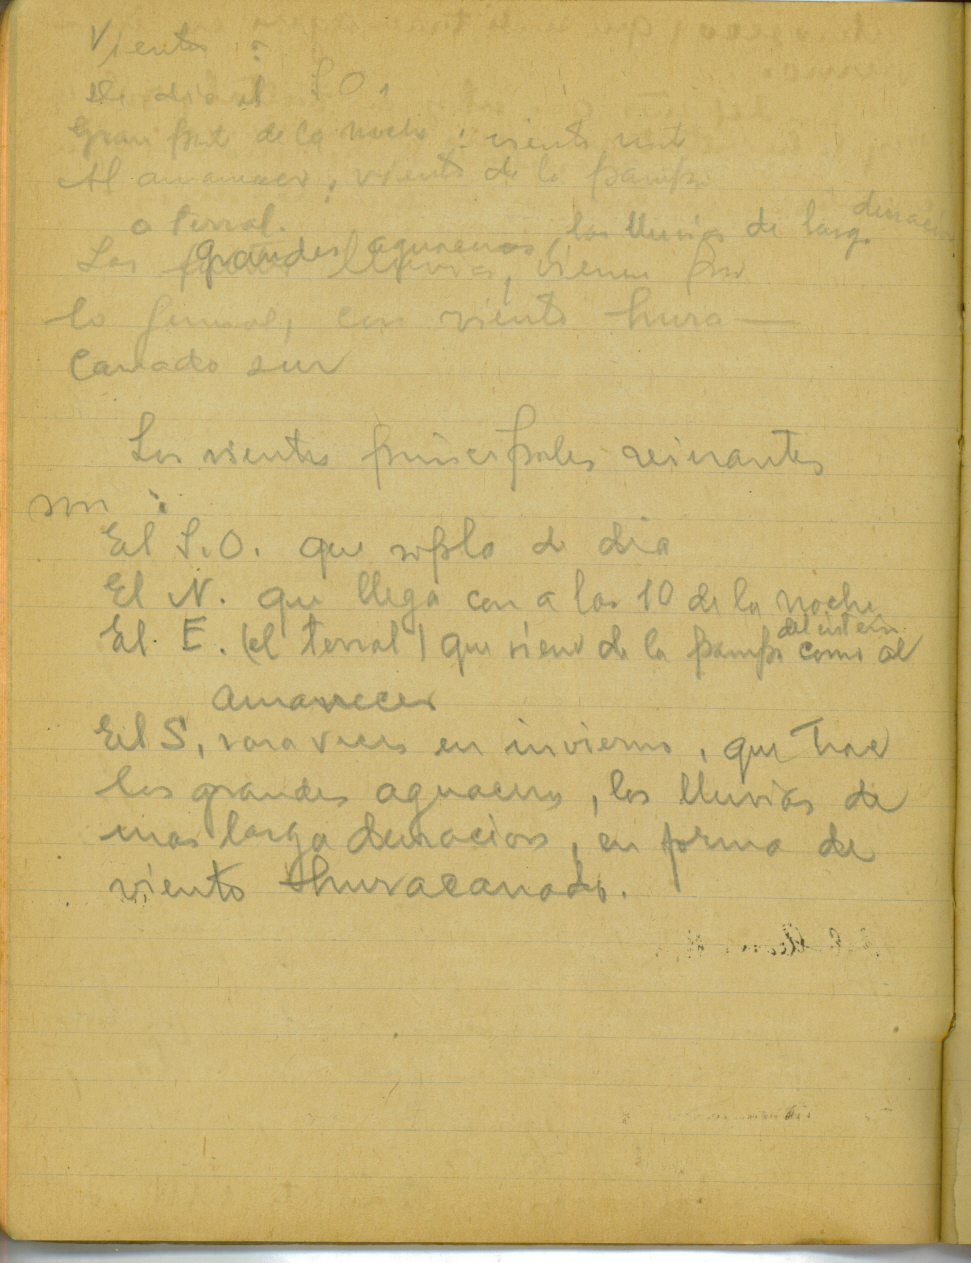 Vientos :
De dia el S.O.
Gran part de la noche : viento norte
Al amanecer, viento de la pampa
o terral.
grandes aguaceros, las lluvias de larga duracion
Las lluvias, vienen por
lo general, con viento hura—
canado sur
Los vientos principales reinantes
son :
El S.O. que sopla de dia
El N. que llega con a las 10 de la noche
El E. (el terral) que viene de la pampa como al
amanecer
El S, rara veces en invierno, que trae
los grandes aguaceros, las lluvias de
mas larga duracion, en forma de
viento huracanado.